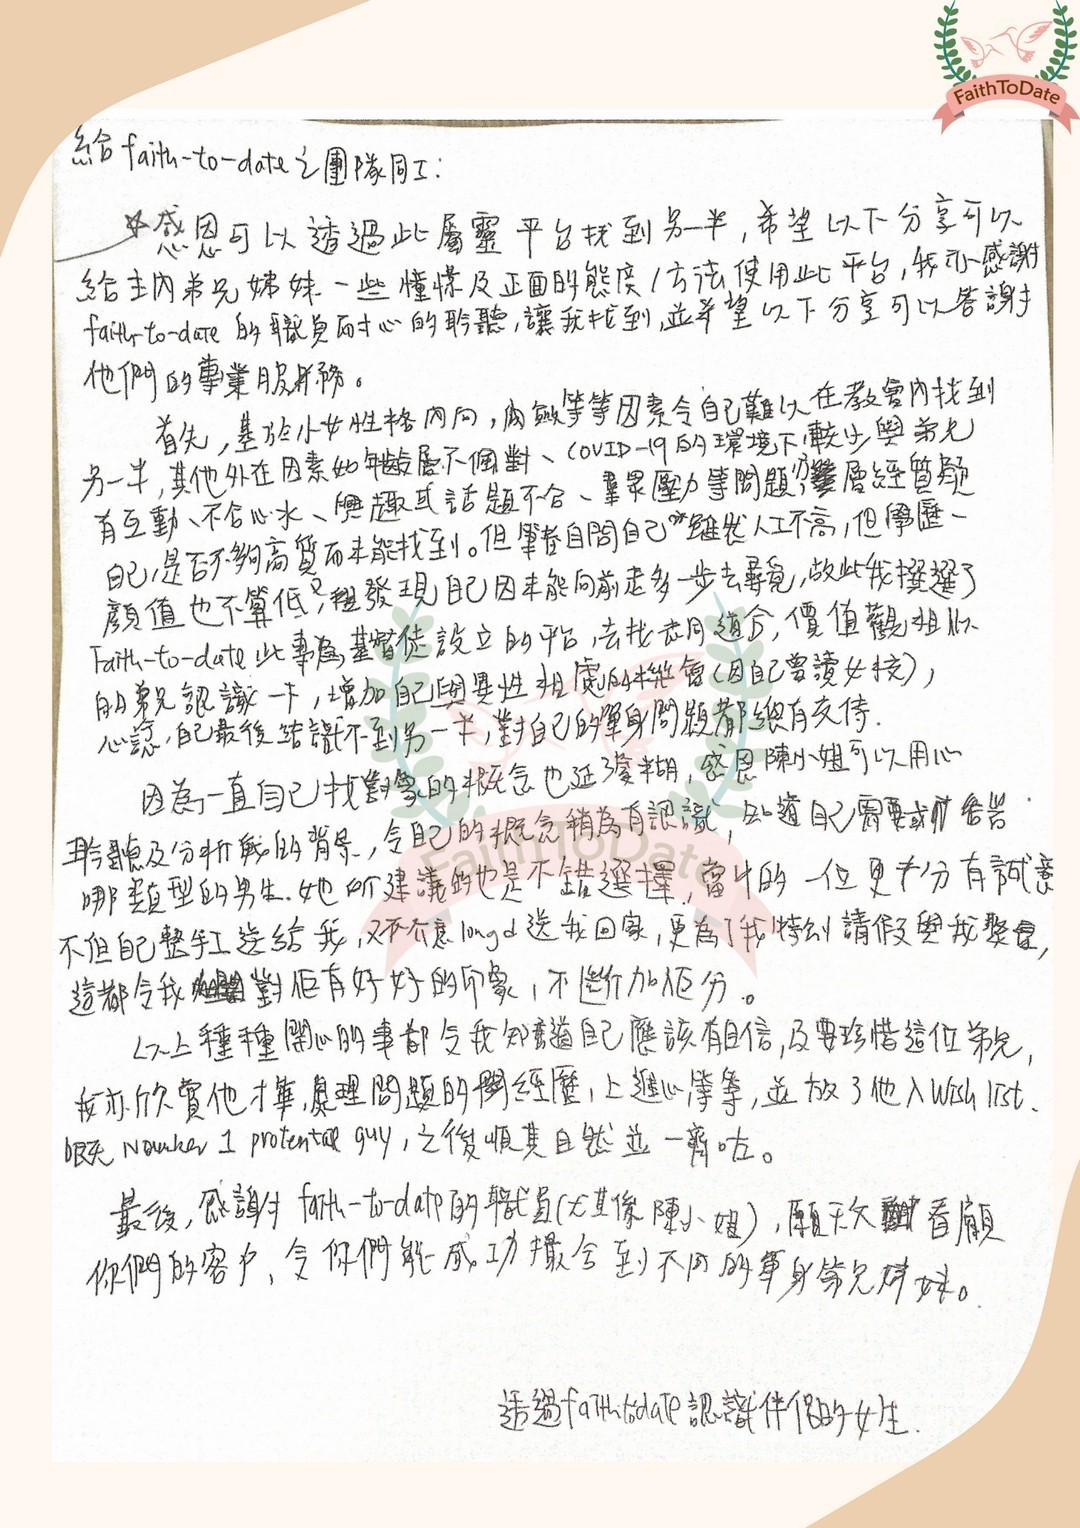 FaithToDate
給 faith-to-date 之團隊同工:
感恩可以透過此屬靈平台找到另一半,希望以下分享可以
給主內弟兄姊妹一些憧憬及正面的態度/方法使用此平台,我亦感謝
faith-to-date 的職員耐心的聆聽,讓我找到,並希望以下分享可以答謝
他們的專業服務。
首先,基於小女性格內向,內斂等等因素令自己難以在教會內找到
另一半,其他外在因素如年齡層不個對、COVID-19的環境下較少與弟兄
有互動、不合心水、興趣或話題不合、羣眾壓力等問題,層經質疑
自己,是否不夠高質而未能找到。但筆者自問自己雖然人工不高,但學歷、
顏值也不算低,發現自己因未能向前走多一步去尋覓,故此我揀選了
Faith-to-date 此專為基督徒設立的平台,去找志同道合,價值觀相似
的弟兄認識一下,增加自己與異性相處的機會(因自己曾讀女校),
心諗,自己最後結識不到另一半,對自己的單身問題都總有交待.
因為一直自己找對象的概念也近乎模糊,感恩陳小姐可以用心
聆聽及分析我的背景,令自己的概念稍為有認識,知道自己需要或
哪類型的男生.她所建議的也是不錯選擇,當中的一位更十分有誠意
不但自己整手工送給我,又不介意long d送我回家,更為了我特別請假與我慶
這都令我對佢有好好的印象,不斷加佢分。
以上種種開心的事都令我知道自己應該有自信,及要珍惜這位弟兄,
我亦欣賞他才華,處理問題的經歷,上進心等等,並放了他入Wish list.
呢 Number 1 protential guy,之後順其自然並一齊咗。
最後,感謝 faith-to-date的職員(尤其係陳小姐),願天父看顧
你們的客戶,令你們能成功撮合到不同的單身弟兄姊妹。
透過faith-to-date認識伴侶的女生.
FaithToDate